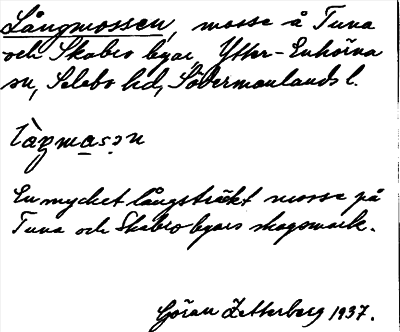 Långmossen, mosse å Tuna
och Skabro byar, Ytter-Enhörna
sn, Selebo hd, Södermanlands l.
En mycket långsträkt mosse på
Tuna och Skabro byars skogsmark.
Göran Zetterberg 1937.